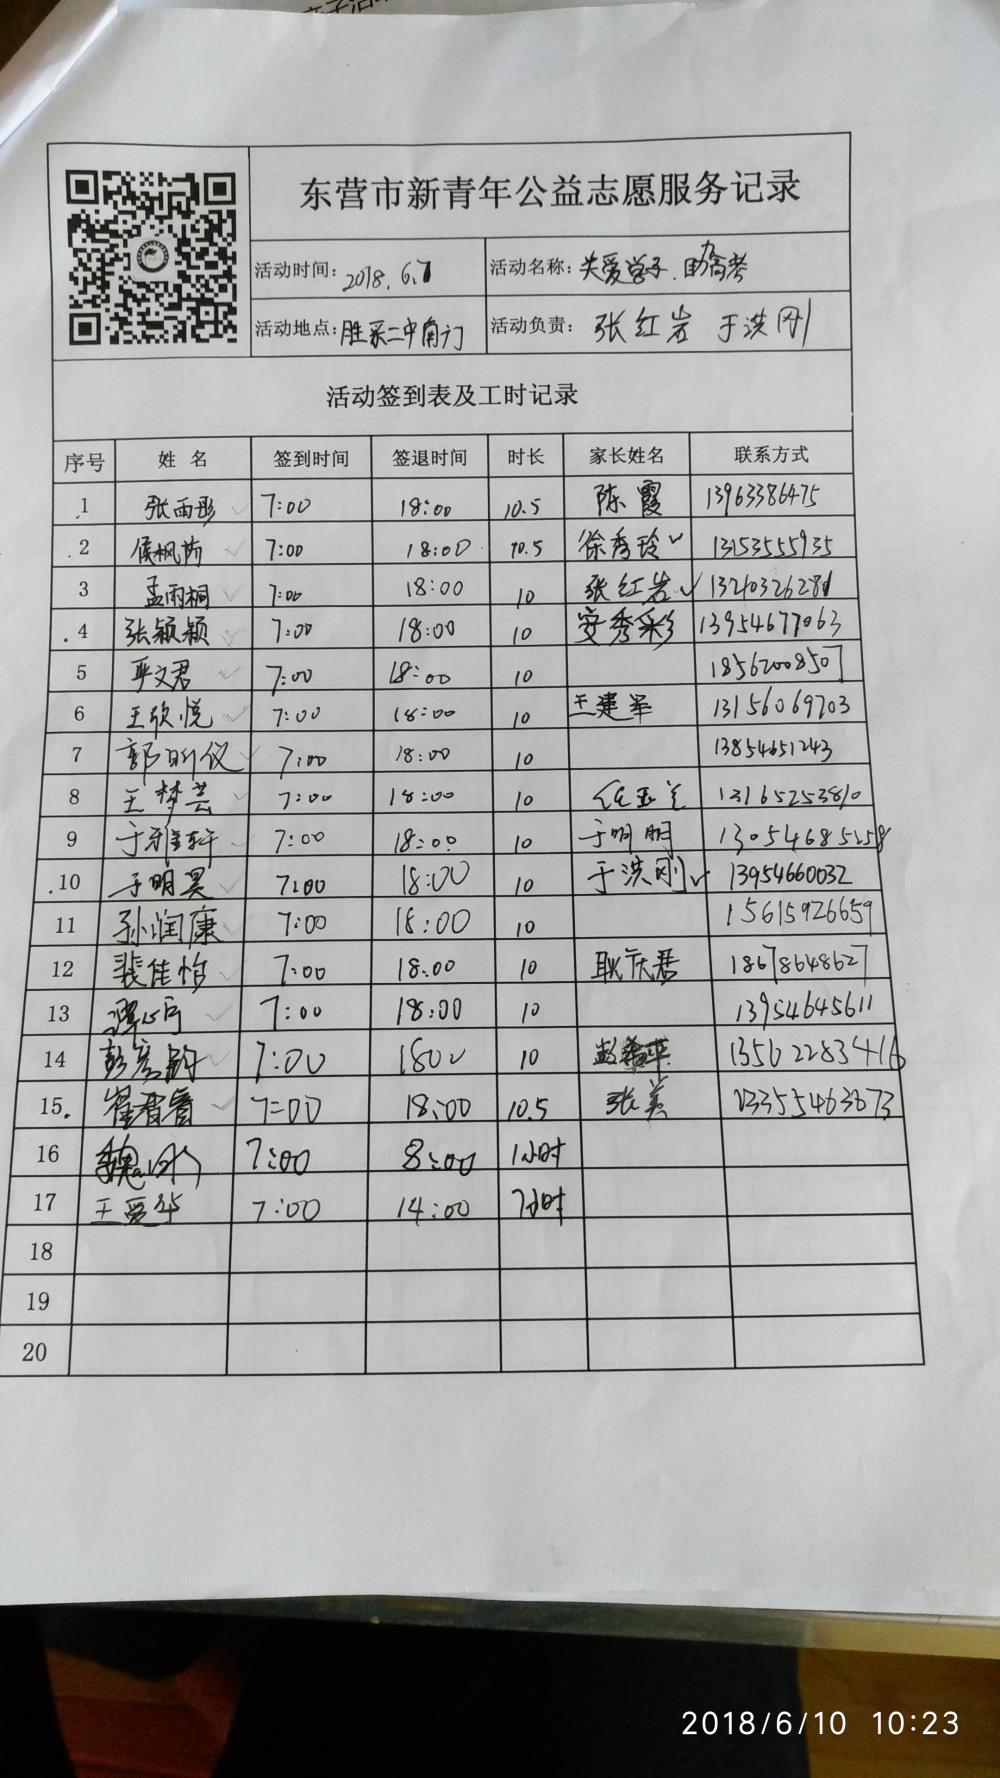 东营市新青年公益志愿服务记录
活动时间: 2018.6.7 活动名称: 关爱学子.助力高考
活动地点: 胜采二中南门 活动负责: 张红岩 于洪刚
活动签到表及工时记录
序号 姓名 签到时间 签退时间 时长 家长姓名 联系方式
1 张雨彤 7:00 18:00 10.5 陈霞 13963386475
2 侯枫 7:00 18:00 10.5 徐秀玲 13153555935
3 孟雨桐 7:00 18:00 10 张红岩
4 张颖颖 7:00 18:00 10 安秀彩 13954677063
5 文君 7:00 18:00 10 18562008507
6 王欣悦 7:00 18:00 10 王建军 13156069703
7 郭昕仪 7:00 18:00 10 13854651243
8 王梦芸 7:00 18:00 10 任玉兰 13165253810
9 于雅轩 7:00 18:00 10 于明明 13054685258
10 于明昊 7:00 18:00 10 于洪刚 13954660032
11 孙润康 7:00 18:00 10 15615926659
12 裴佳怡 7:00 18:00 10 耿庆君 18678648627
13 7:00 18:00 10 13954645611
14 彭 7:00 1800 10 13562283416
15. 崔 7:00 18:00 10.5 张美 13355463673
16 魏 7:00 8:00 1小时
17 王爱华 7:00 14:00 7小时
18
19
20
2018/6/10 10:23